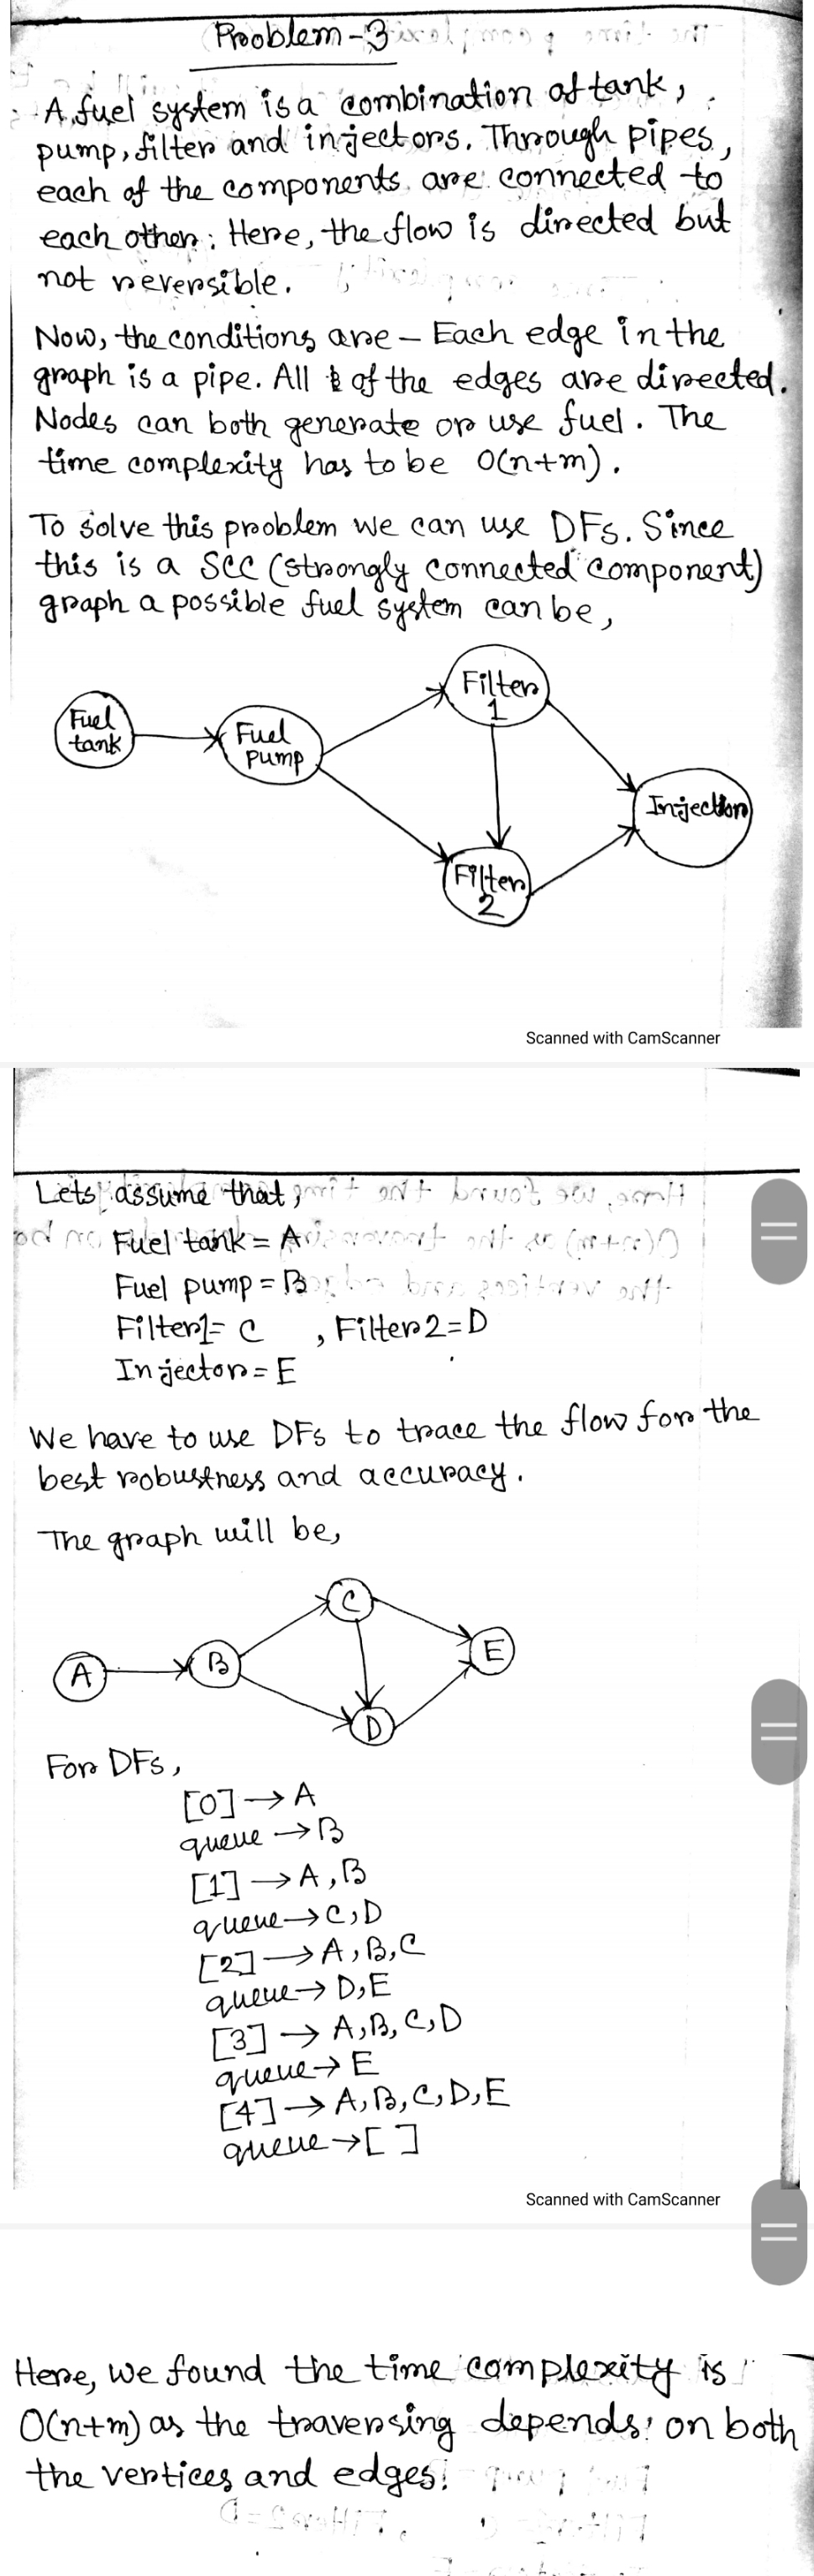 Problem-3
A fuel system is a combination of tank,
pump, filter and injectors. Through pipes,
each of the components are connected to
each other. Here, the flow is directed but
not reversible.
Now, the conditions are - Each edge in the
graph is a pipe. All of the edges are directed.
Nodes can both generate or use fuel. The
time complexity has to be O(n+m).
To solve this problem we can use DFs. Since
this is a SCC (strongly connected component)
graph a possible fuel system can be,
Fuel
tank
Fuel
pump
Filter
1
Filter
2
Injection
Scanned with CamScanner
Lets assume that,
Fuel tank = A
Fuel pump = B
Filter1 = C , Filter 2 = D
Injector = E
We have to use DFs to trace the flow for the
best robustness and accuracy.
The graph will be,
A
B
C
D
E
For DFs,
[0] → A
queue → B
[1] → A, B
queue → C, D
[2] → A, B, C
queue → D, E
[3] → A, B, C, D
queue → E
[4] → A, B, C, D, E
queue → [ ]
Scanned with CamScanner
Here, we found the time complexity is
O(n+m) as the traversing depends on both
the vertices and edges.